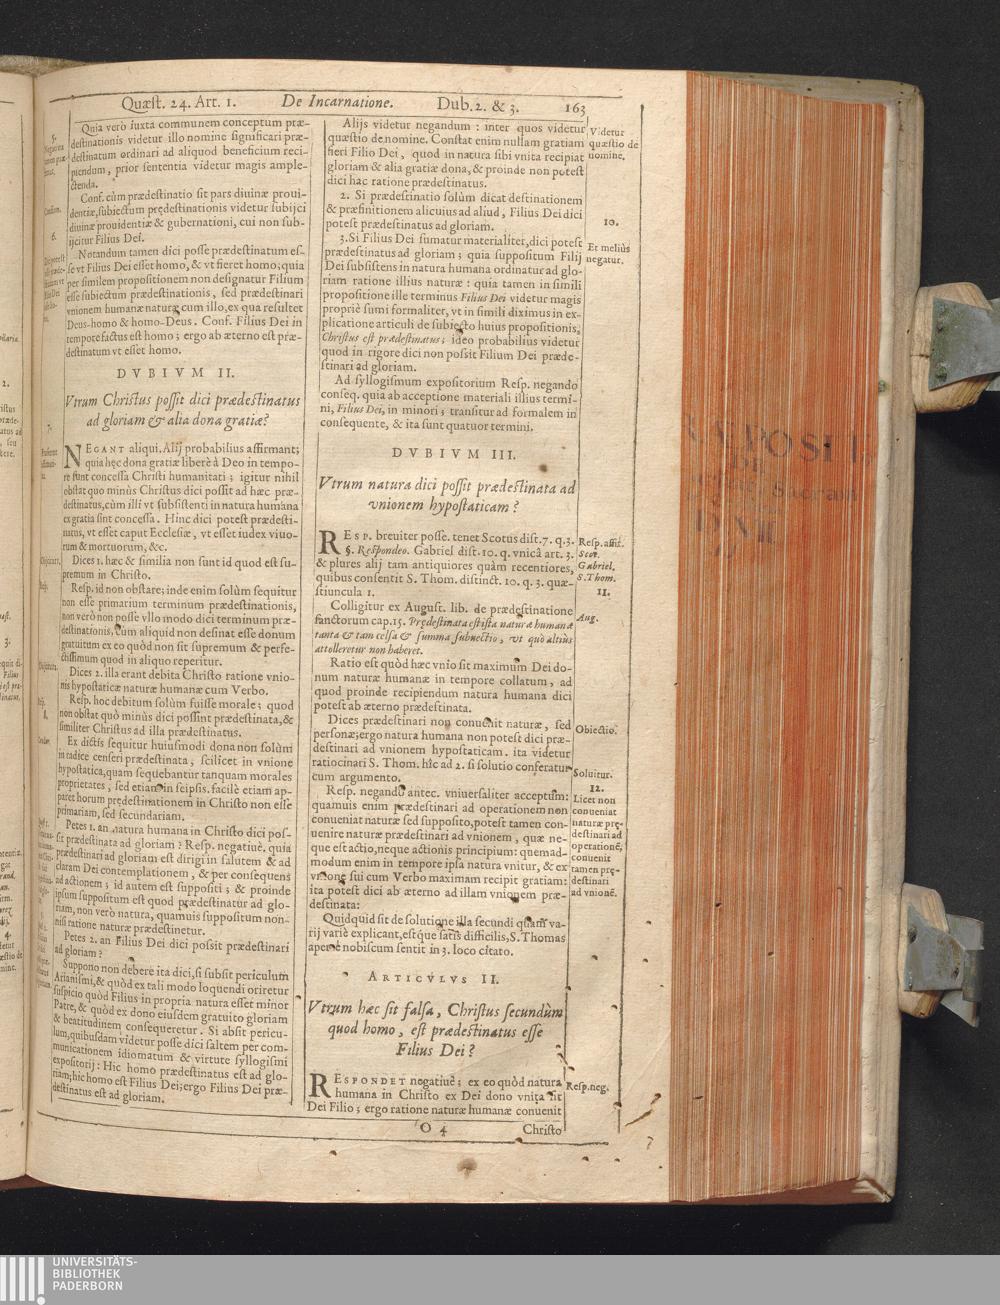 Quæst. 24. Art. 1. De Incarnatione. Dub. 2. & 3. 163
Quia verò iuxta communem conceptum præ-
destinationis videtur illo nomine significari præ-
destinatum ordinari ad aliquod beneficium reci-
piendum, prior sententia videtur magis ample-
ctenda.
Conf. cùm prædestinatio sit pars diuinæ proui-
dentiæ, subiectum prędestinationis videtur subijci
diuinæ prouidentiæ & gubernationi, cui non sub-
ijcitur Filius Dei.
Notandum tamen dici posse prædestinatum es-
se vt Filius Dei esset homo, & vt fieret homo; quia
per similem propositionem non designatur Filium
esse subiectum prædestinationis, sed prædestinari
vnionem humanæ naturæ cum illo, ex qua resultet
Deus-homo & homo-Deus. Conf. Filius Dei in
tempore factus est homo; ergo ab æterno est præ-
destinatum vt esset homo.
DVBIVM II.
Vtrum Christus possit dici prædestinatus
ad gloriam & alia dona gratiæ?
NEGANT aliqui. Alij probabilius affirmant;
quia hęc dona gratiæ liberè à Deo in tempo-
re sunt concessa Christi humanitati; igitur nihil
obstat quo minùs Christus dici possit ad hæc præ-
destinatus, cùm illi vt subsistenti in natura humana
ex gratia sint concessa. Hinc dici potest prædesti-
natus, vt esset caput Ecclesiæ, vt esset iudex viuo-
rum & mortuorum, &c.
Dices 1. hæc & similia non sunt id quod est su-
premum in Christo.
Resp. id non obstare; inde enim solùm sequitur
non esse primarium terminum prædestinationis,
non verò non posse vllo modo dici terminum præ-
destinationis, cùm aliquid non desinat esse donum
gratuitum ex eo quòd non sit supremum & perfe-
ctissimum quod in aliquo reperitur.
Dices 2. illa erant debita Christo ratione vnio-
nis hypostaticæ naturæ humanæ cum Verbo.
Resp. hoc debitum solùm fuisse morale; quod
non obstat quò minùs dici possint prædestinata, &
similiter Christus ad illa prædestinatus.
Ex dictis sequitur huiusmodi dona non solùm
in radice censeri prædestinata, scilicet in vnione
hypostatica, quam sequebantur tanquam morales
proprietates, sed etiam in seipsis. facilè etiam ap-
paret horum prędestinationem in Christo non esse
primariam, sed secundariam.
Petes 1. an natura humana in Christo dici pos-
sit prædestinata ad gloriam? Resp. negatiuè, quia
prædestinari ad gloriam est dirigi in salutem & ad
claram Dei contemplationem, & per consequens
ad actionem; id autem est suppositi; & proinde
ipsum suppositum est quod prædestinatur ad glo-
riam, non verò natura, quamuis suppositum non-
nisi ratione naturæ prædestinetur.
Petes 2. an Filius Dei dici possit prædestinari
ad gloriam?
Suppono non debere ita dici, si subsit periculum
Arianismi, & quòd ex tali modo loquendi oriretur
suspicio quòd Filius in propria natura esset minor
Patre, & quòd ex dono eiusdem gratuito gloriam
& beatitudinem consequeretur. Si absit pericu-
lum, quibusdam videtur posse dici saltem per com-
municationem idiomatum & virtute syllogismi
expositorij: Hic homo prædestinatus est ad glo-
riam; hic homo est Filius Dei; ergo Filius Dei præ-
destinatus est ad gloriam.
Alijs videtur negandum: inter quos videtur
quæstio de nomine. Constat enim nullam gratiam
fieri Filio Dei, quod in natura sibi vnita recipiat
gloriam & alia gratiæ dona, & proinde non potest
dici hac ratione prædestinatus.
2. Si prædestinatio solùm dicat destinationem
& præfinitionem alicuius ad aliud, Filius Dei dici
potest prædestinatus ad gloriam.
3. Si Filius Dei sumatur materialiter, dici potest
prædestinatus ad gloriam; quia suppositum Filij
Dei subsistens in natura humana ordinatur ad glo-
riam ratione illius naturæ: quia tamen in simili
propositione ille terminus Filius Dei videtur magis
propriè sumi formaliter, vt in simili diximus in ex-
plicatione articuli de subiecto huius propositionis,
Christus est prædestinatus; ideo probabilius videtur
quod in rigore dici non possit Filium Dei præde-
stinari ad gloriam.
Ad syllogismum expositorium Resp. negando
conseq. quia ab acceptione materiali illius termi-
ni, Filius Dei, in minori; transitur ad formalem in
consequente, & ita sunt quatuor termini.
DVBIVM III.
Vtrum natura dici possit prædestinata ad
vnionem hypostaticam?
RESP. breuiter posse. tenet Scotus dist. 7. q. 3.
§. Respondeo. Gabriel dist. 10. q. vnicâ art. 3.
& plures alij tam antiquiores quàm recentiores,
quibus consentit S. Thom. distinct. 10. q. 3. quæ-
stiuncula 1.
Colligitur ex August. lib. de prædestinatione
sanctorum cap. 15. Prędestinata est ista naturæ humanæ
tanta & tam celsa & summa subuectio, vt quò altius
attolleretur non haberet.
Ratio est quòd hæc vnio sit maximum Dei do-
num naturæ humanæ in tempore collatum, ad
quod proinde recipiendum natura humana dici
potest ab æterno prædestinata.
Dices prædestinari non conuenit naturæ, sed
personæ; ergo natura humana non potest dici præ-
destinari ad vnionem hypostaticam. ita videtur
ratiocinari S. Thom. hîc ad 2. si solutio conferatur
cum argumento.
Resp. negando antec. vniuersaliter acceptum:
quamuis enim prædestinari ad operationem non
conueniat naturæ sed supposito, potest tamen con-
uenire naturæ prædestinari ad vnionem, quæ ne-
que est actio, neque actionis principium: quemad-
modum enim in tempore ipsa natura vnitur, & ex
vnione sui cum Verbo maximam recipit gratiam:
ita potest dici ab æterno ad illam vnionem præ-
destinata:
Quidquid sit de solutione illa secundi quam va-
rij variè explicant, estque satis difficilis, S. Thomas
apertè nobiscum sentit in 3. loco citato.
ARTICVLVS II.
Vtrum hæc sit falsa, Christus secundùm
quod homo, est prædestinatus esse
Filius Dei?
RESPONDET negatiuè; ex eo quòd natura
humana in Christo ex Dei dono vnita sit
Dei Filio; ergo ratione naturæ humanæ conuenit
O 4 Christo
Videtur
quæstio de
nomine.
10.
Et meliùs
negatur.
Resp. affir.
Scot.
Gabriel.
S. Thom.
11.
Aug.
Obiectio.
Soluitur.
12.
Licet non
conueniat
naturæ prę-
destinari ad
operationē,
conuenit
tamen prę-
destinari
ad vnionē.
Resp. neg.
UNIVERSITÄTS-
BIBLIOTHEK
PADERBORN